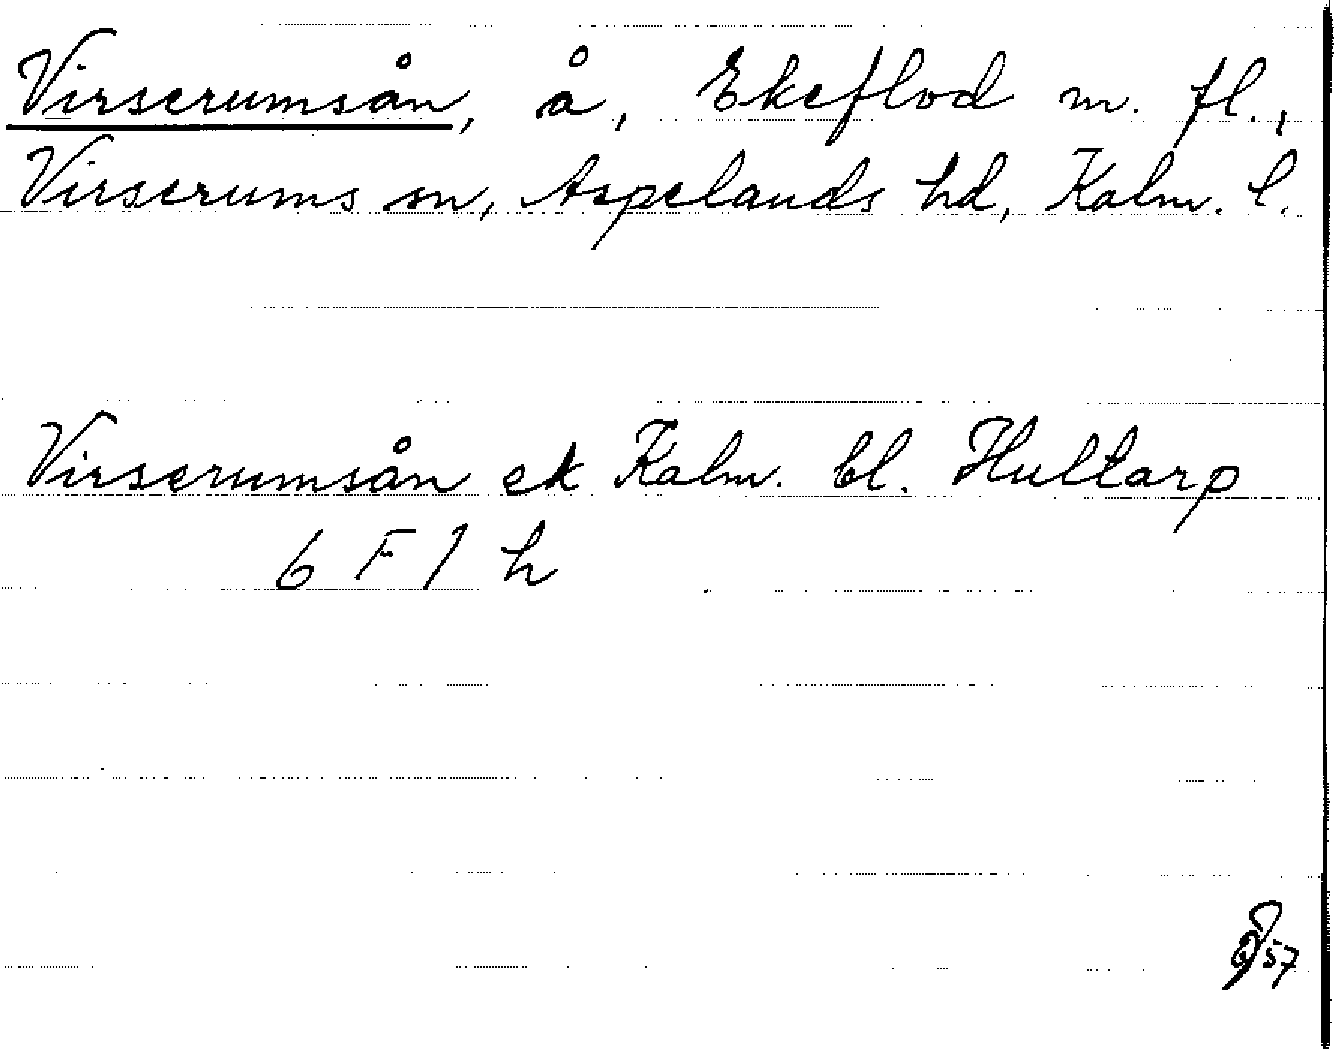 Virserumsån, å, Ekeflod m. fl.,
Virserums sn, Aspelands hd, Kalm. l.
Virserumsån ek Kalm. bl. Hultarp
6 F 1 h
57